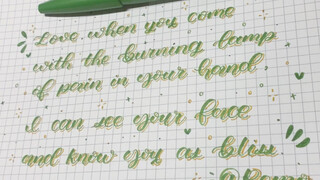 Love when you come
with the burning lamp
of pain in your hand.
I can see your face
and know you as bliss